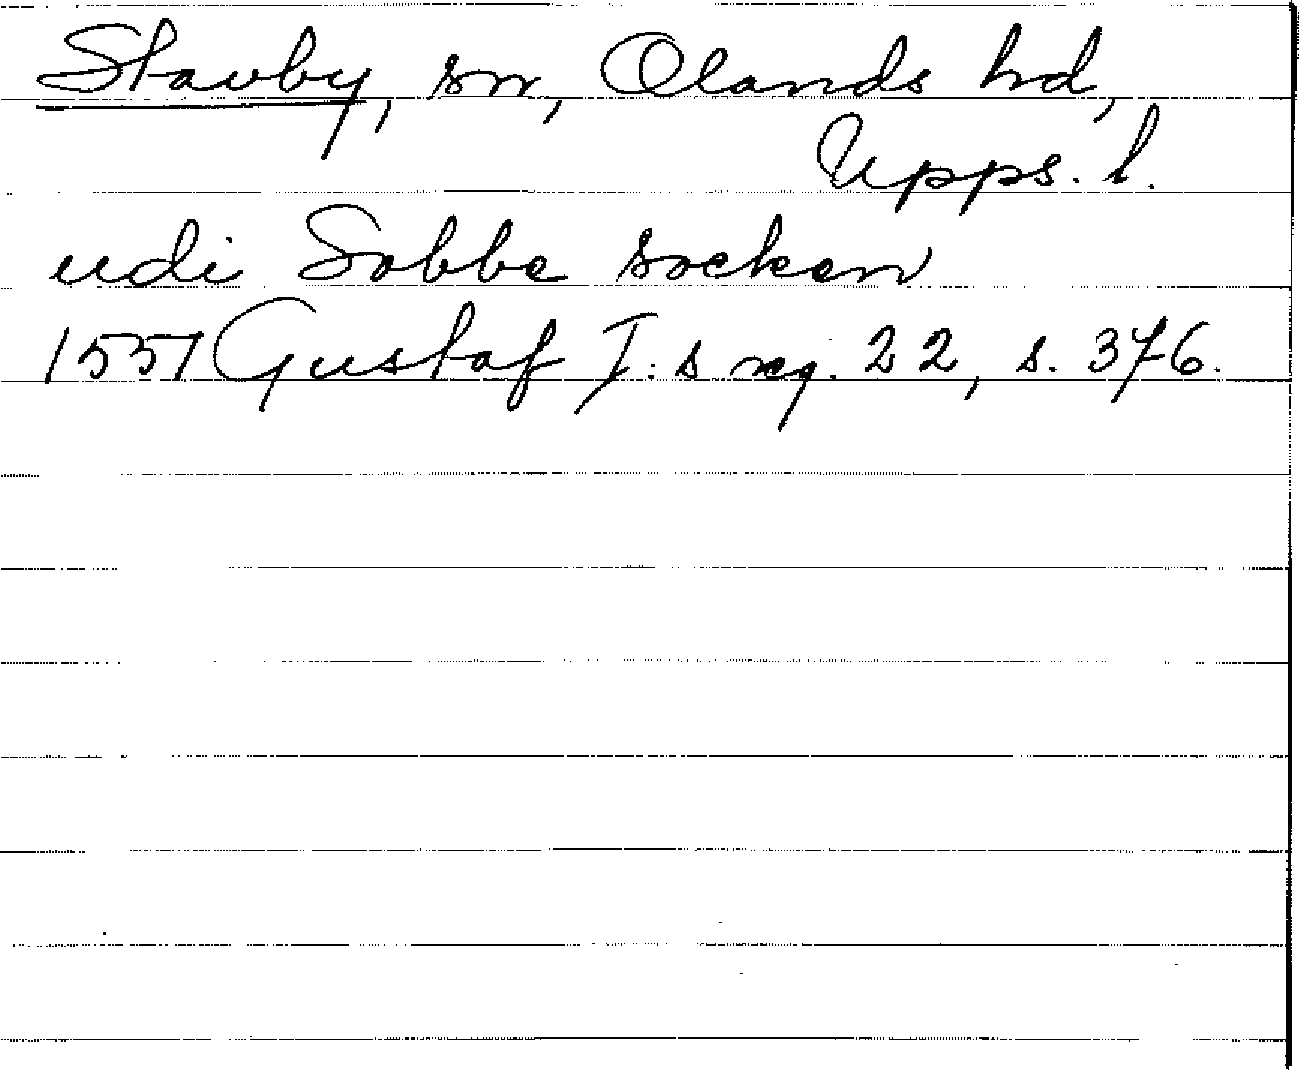 Stavby, sn, Olands hd,
Upps. l.
udi Sobbe socken
1551 Gustaf I:s reg. 22, s. 376.